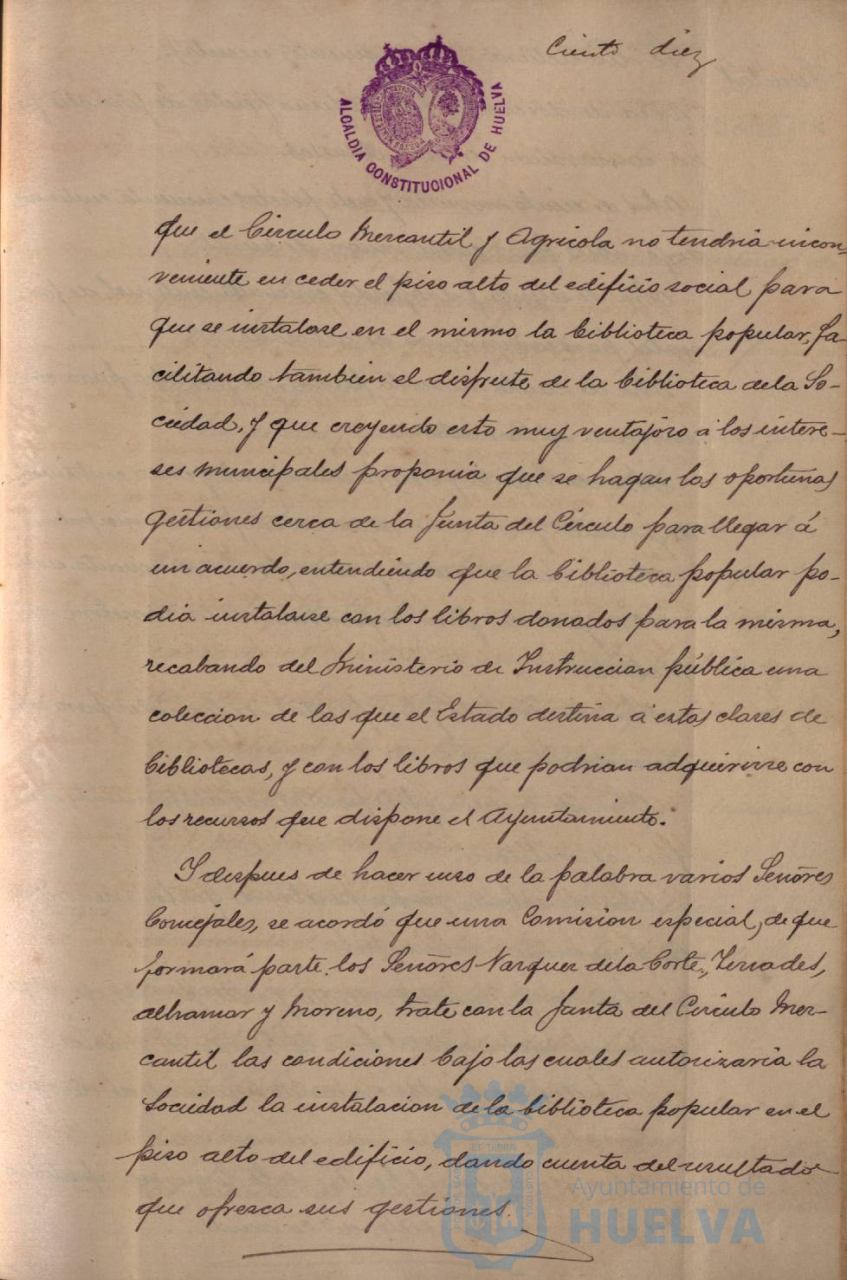 Ciento diez
ALCALDIA CONSTITUCIONAL DE HUELVA
que el Círculo Mercantil y Agrícola no tendria incon-
veniente en ceder el piso alto del edificio social para
que se instalase en el mismo la biblioteca popular, fa-
cilitando tambien el disfrute de la biblioteca dela So-
ciedad, y que creyendo esto muy ventajoso á los intere-
ses municipales proponia que se hagan las oportunas
gestiones cerca de la Junta del Círculo para llegar á
un acuerdo, entendiendo que la biblioteca popular po-
dia instalarse con los libros donados para la misma,
recabando del Ministerio de Instruccion pública una
coleccion de las que el Estado destina á estas clases de
bibliotecas, y con los libros que podrian adquirirse con
los recursos que dispone el Ayuntamiento.
Y despues de hacer uso de la palabra varios Señores
Concejales, se acordó que una Comision especial, de que
formará parte los Señores Vazquez dela Corte, Terrades,
Alhamar y Moreno, trate con la Junta del Círculo Mer-
cantil las condiciones bajo las cuales autorizaria la
Sociedad la instalacion de la biblioteca popular en el
piso alto del edificio, dando cuenta del resultado
que ofrezca sus gestiones.
Ayuntamiento de
HUELVA